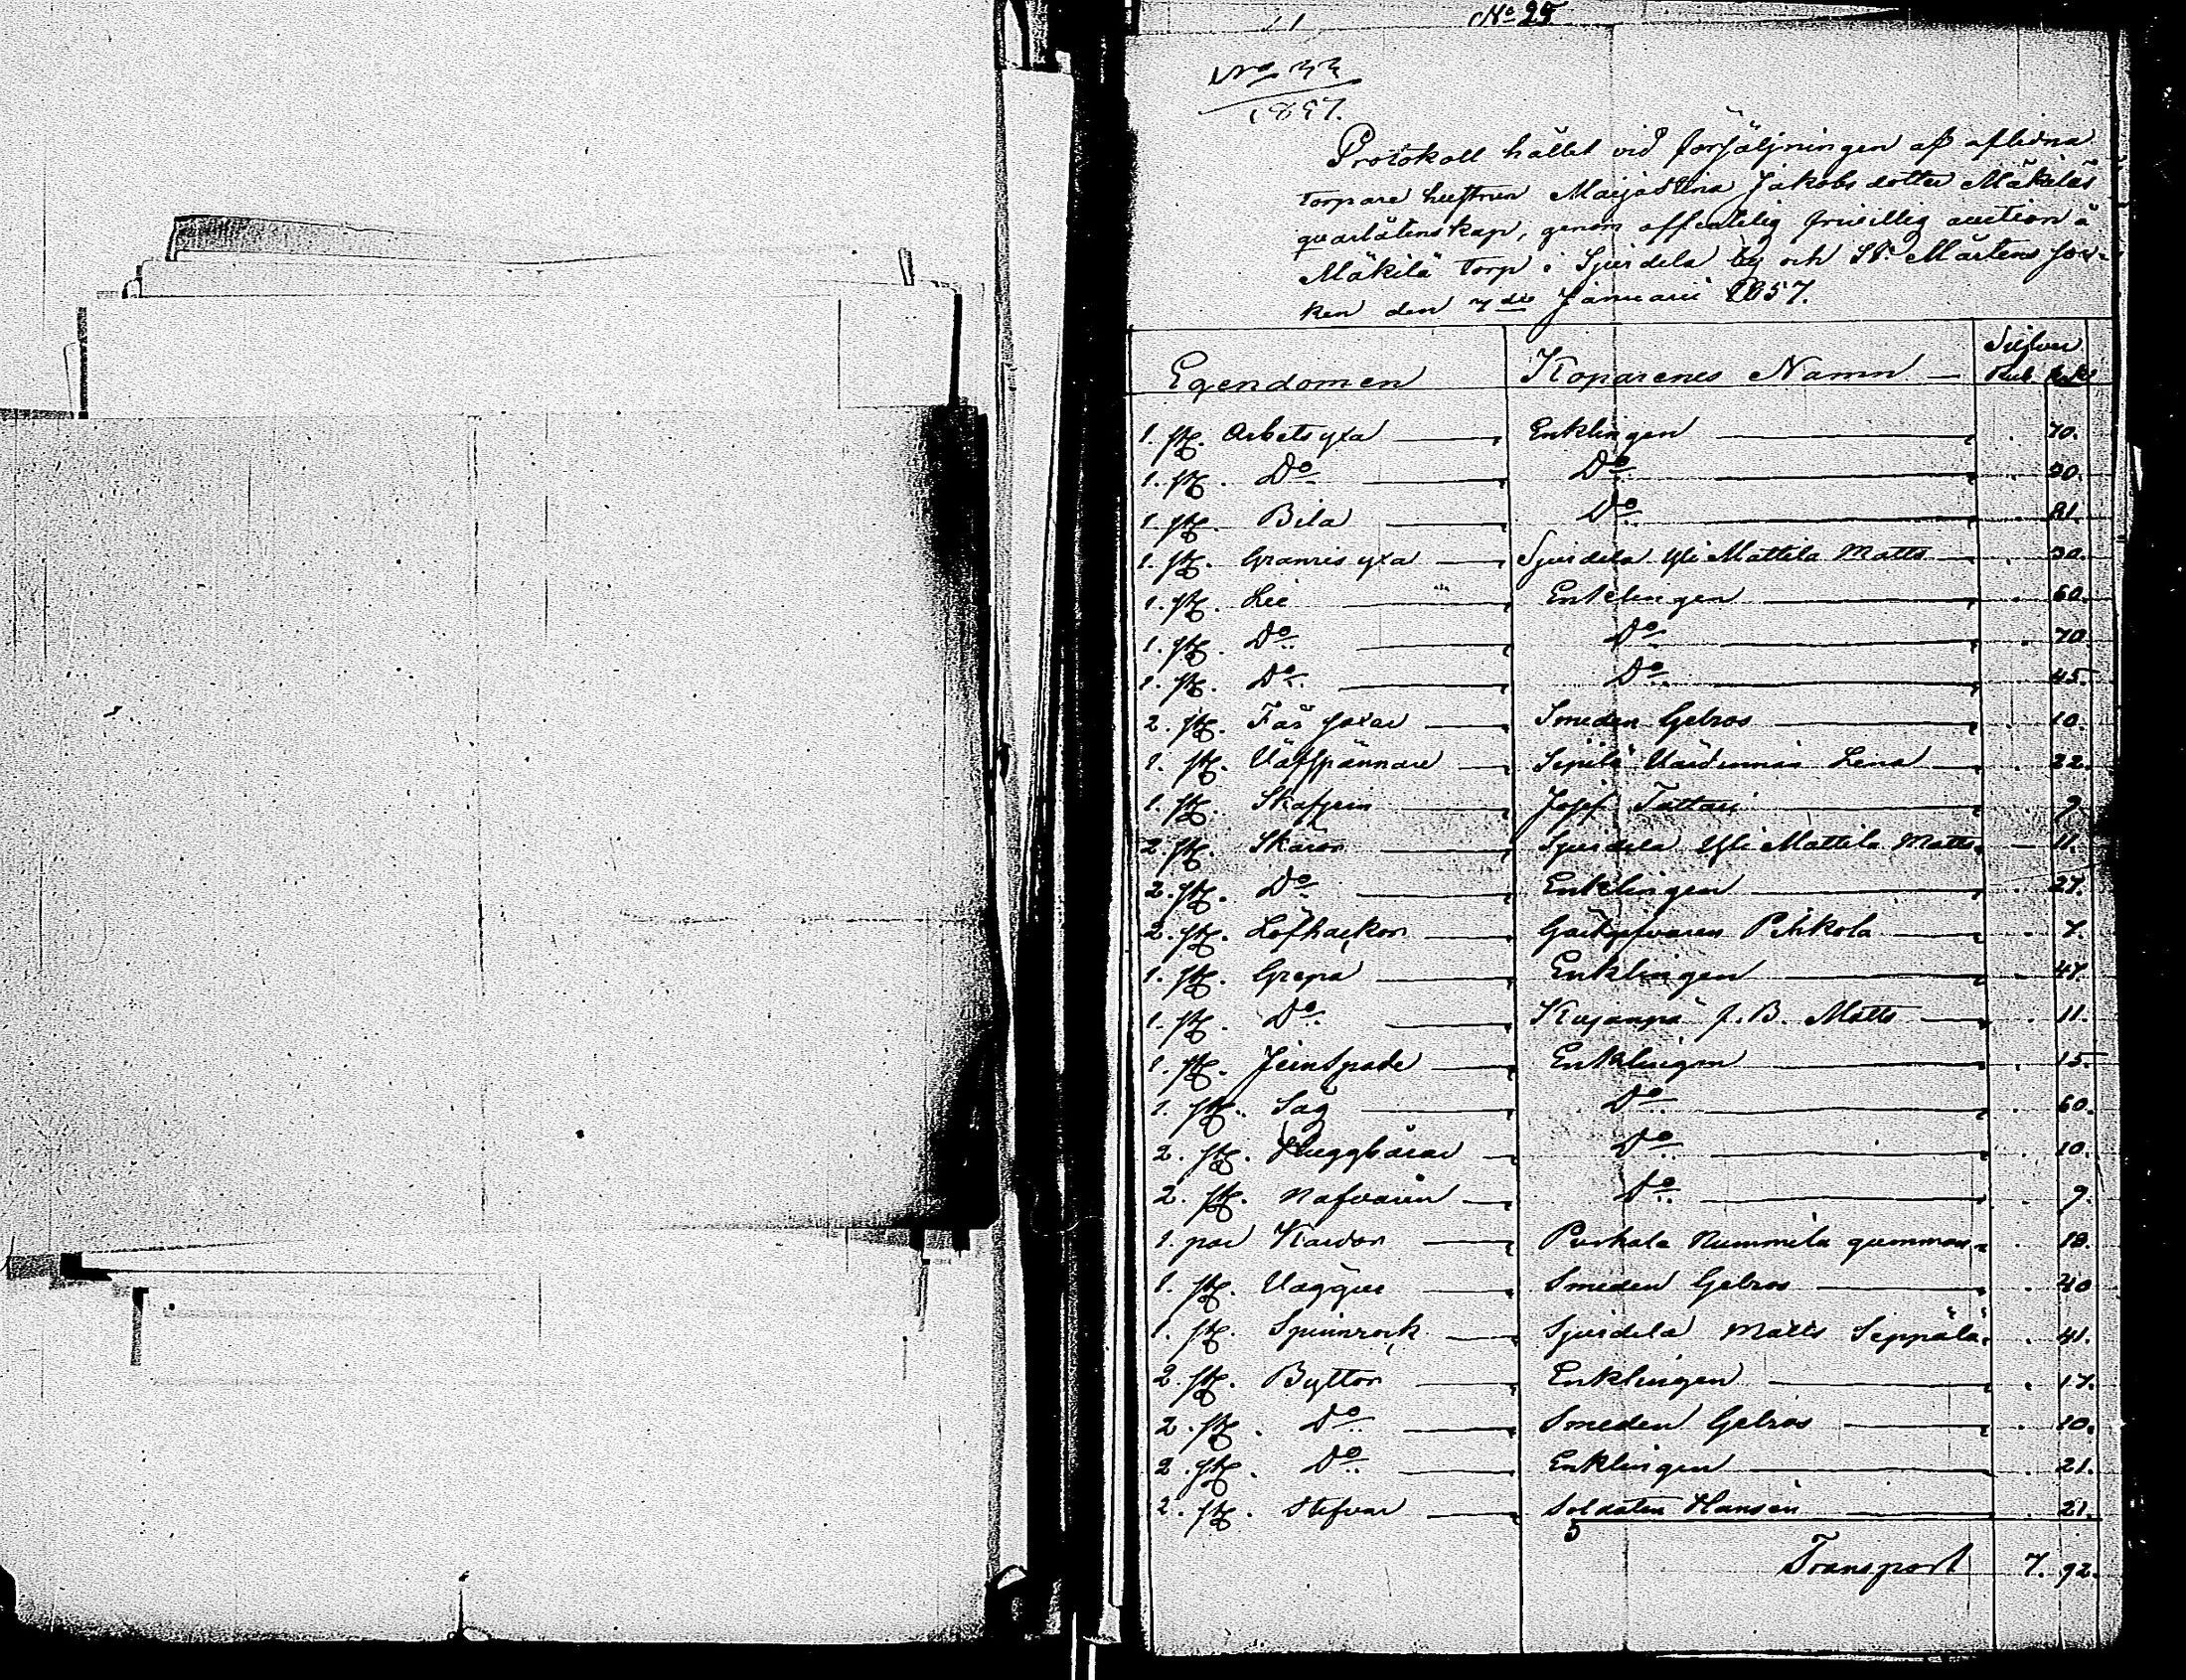 No 25
No 33
1857.
Protokoll hållet vid försäljningen af aflidna
torpare hustrun Maija Stina Jakobsdotter Mäkiläs
qvarlåtenskap, genom offentelig frivillig auction å
Mäkilä torp i Sjurdela by och St. Mårtens soc-
ken den 7de Januari 1857.
Egendomen Köparenes Namn Silfver
Rub. Kop.
1. st. Arbetsyxa Enklingen . 70.
1. st. Do Do . 30.
1. st. Bila Do . 81.
1. st. Granrisyxa Sjurdela Yli Mattila Matts . 30.
1. st. Lie Enklingen . 60.
1. st. Do Do . 70.
1. st. Do Do . 45.
2. st. Får saxar Smeden Gebros . 10.
1. st. Väfspännare Sipilä Värdinnan Lena . 22.
1. st. Josef Tattari . 9.
2. st. Skäror Sjurdela Yli Mattila Matts. 11.
2. st. Do Enklingen . 27.
2. st. Löfhackor Gästgifvaren Pihkola . 7.
1. st. Grepa Enklingen . 47.
1. st. Do Kujanpä f.B. Matts . 11.
1. st. Jernspade Enklingen . 15.
1. st. Såg Do . 60.
2. st. Huggbårar Do . 10.
2. st. Nafvaren Do . 9.
1. par Kardor Purhala Nummila gumman . 18.
1. st. Vagga Smeden Gebros . 40
1. st. Spinnrock Sjurdela Matts Seppälä . 41.
2. st. Byttor Enklingen . 17.
2. st. Do Smeden Gebros . 10.
2. st. Do Enklingen . 21.
2. st. Stefvar Soldaten Hansén . 21.
5
Transport 7. 92.